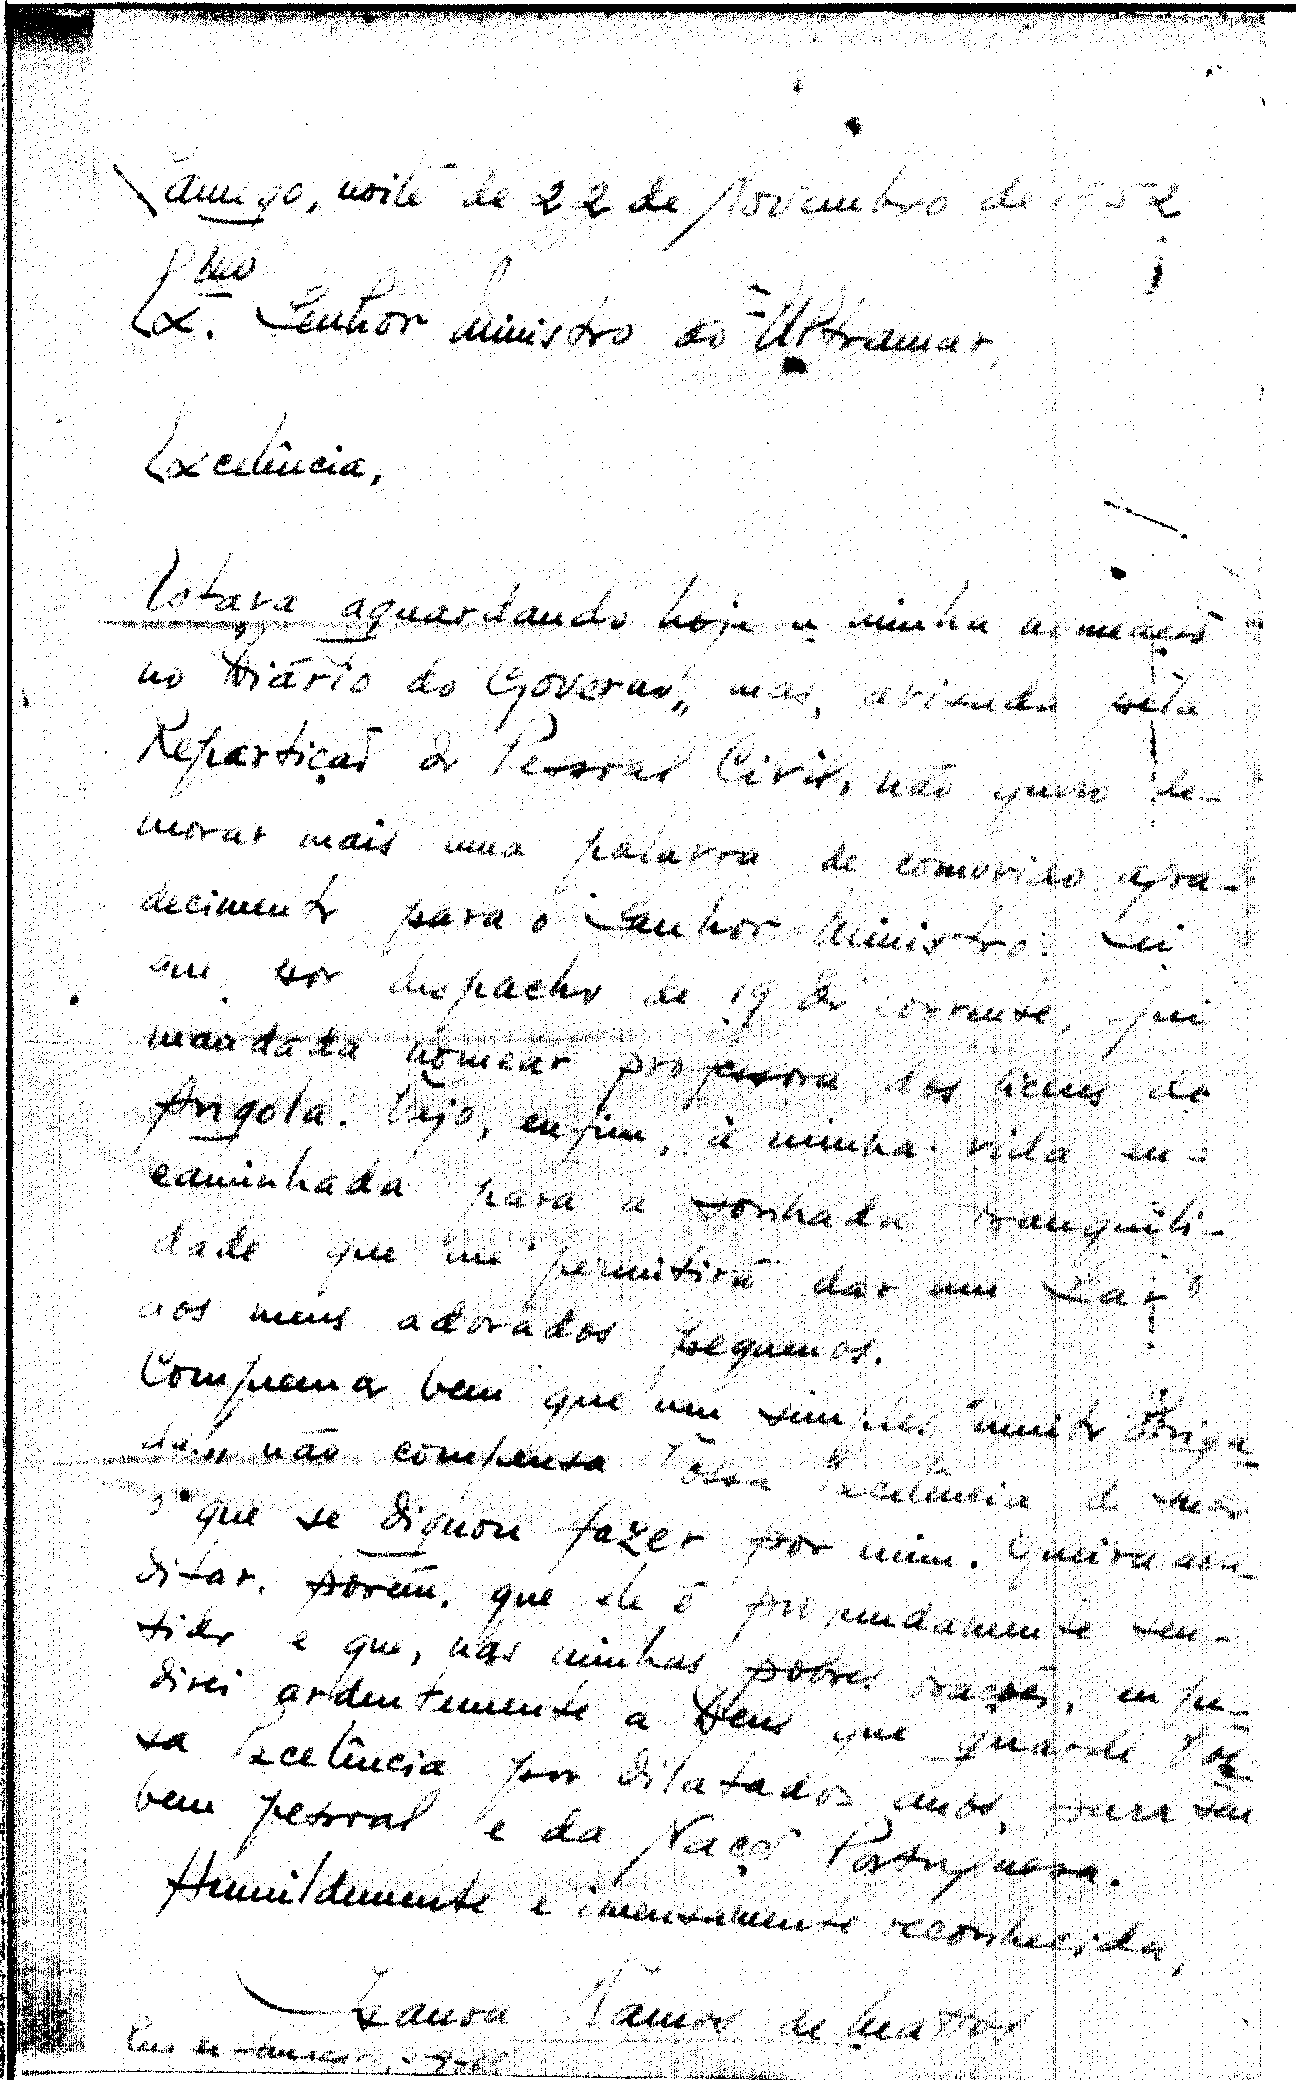 Lamego, noite de 22 de Novembro de 1952
Ex.mo Senhor Ministro do Ultramar,
Excelência,
Estava aguardando hoje a minha nomeação
no "Diário do Governo", mas, avisada pela
Repartição do Pessoal Civil, não quero de-
morar mais uma palavra de comovido agra-
decimento para o Senhor Ministro. Sei
que, por despacho de 19 do corrente, fui
mandada nomear professora dos liceus de
Angola. Vejo, enfim, a minha vida en-
caminhada para a sonhada tranquili-
dade que me permitirá dar um "Lar"
aos meus adorados pequenos.
Compreendo bem que um simples "muito obriga-
do" não compensa Vossa Excelência de tudo
o que se dignou fazer por mim. Queira acre-
ditar, porém, que ele é profundamente sen-
tido e que, nas minhas pobres orações, eu pe-
direi ardentemente a Deus que guarde Vos-
sa Excelência por dilatados anos, para seu
bem pessoal e da Nação Portuguesa.
Humildemente e imensamente reconhecida,
Ramos de Matos